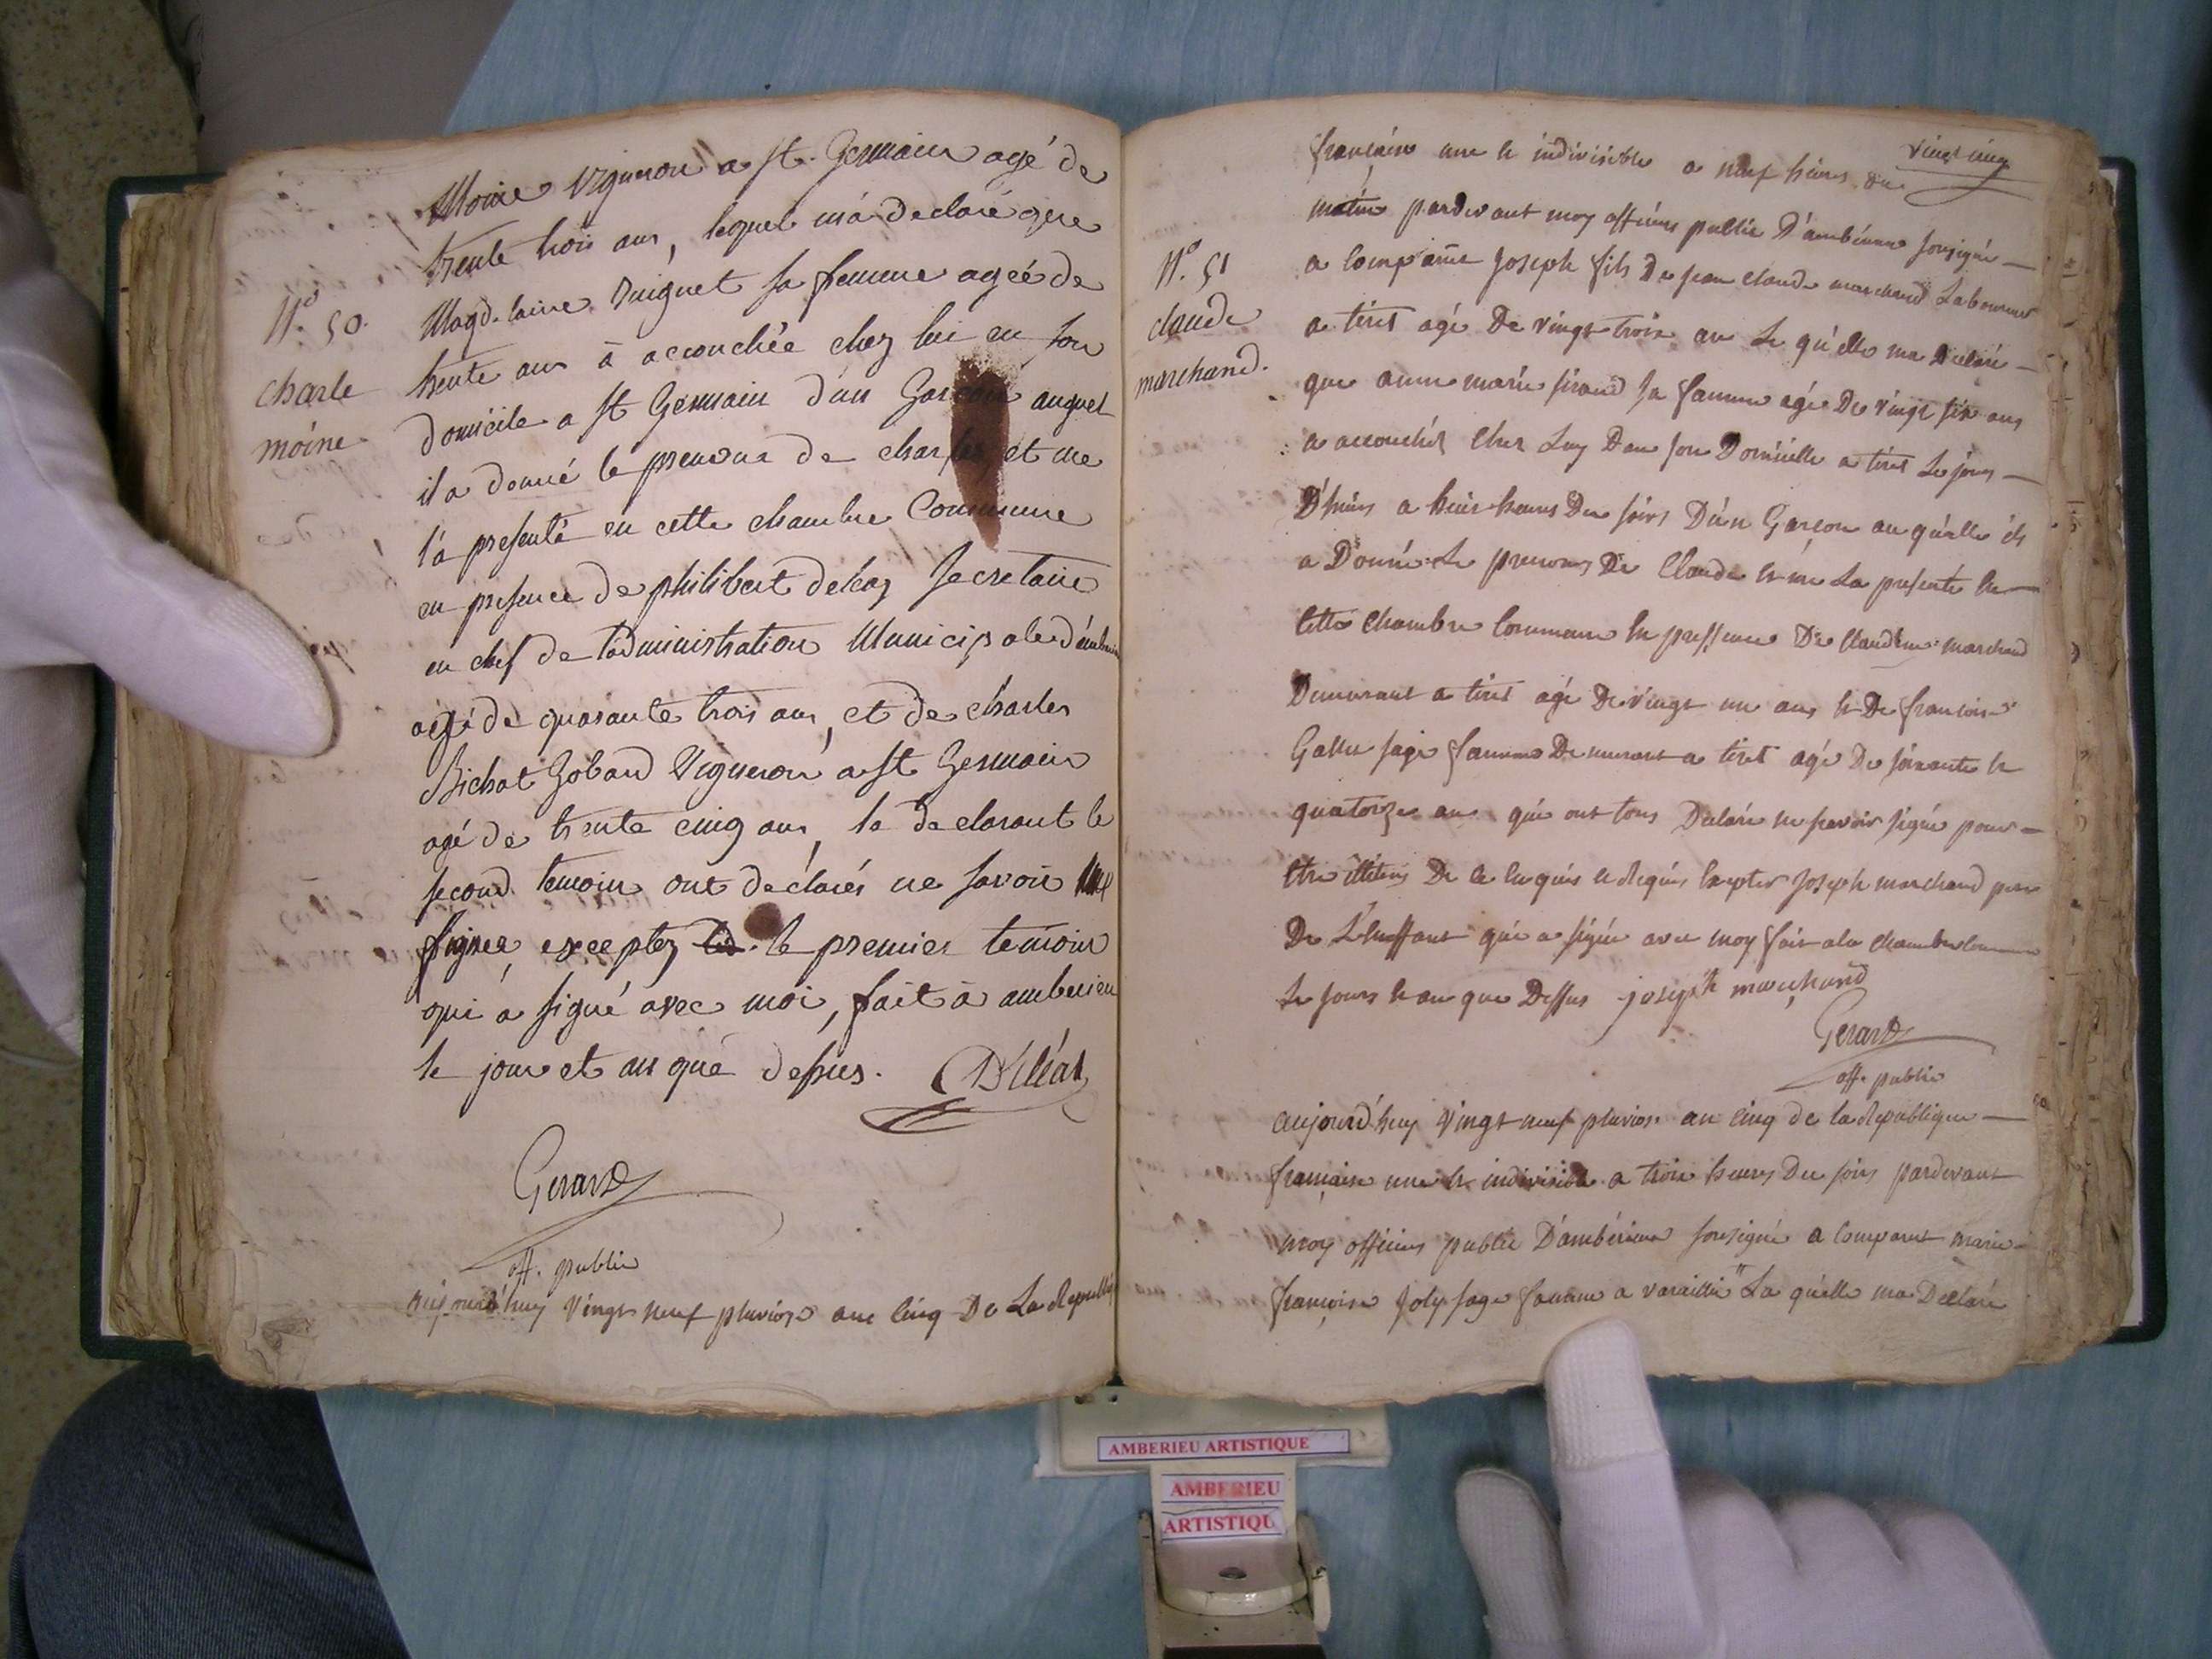 Moine vigneron a st. Germain agé de
trente trois ans, lequel m'a declaré que
Magd.laine vuignet sa femme ageé de
trente ans à accouchée chez lui en son
domicile a st Germain d'un Garçon auquel
il a donné le prenom de charles et me
l'a presenté en cette chambre Commune
en presence de philibert secretaire
en chef de l'administration Municipale d'amberieu
agé de quarante trois ans, et de charles
Bichat Vigneron a st Germain
agé de trente cinq ans, le declarant le
second temoin ont declarés ne savoir
signer, exceptez le premier temoin
qui a signé avec moi, fait à amberieu
le jour et an que dessus.
Gerard
off. public
aujourd'huy vingt neuf pluviose an cinq De La republiq
N.º 50.
charle
moine
vingt cinq
française une et indivisible a neuf heures du
matin pardevant moy officiers public D'amberieux sousigné
a comparue Joseph fils De jean claude marchand Laboureur
a tiret agé De vingt trois ans Le qu'elle ma Declaré
que anne marie sirand sa famme agée De vingt six ans
a accouchéz chez Luy Dans son Domicille a tiret Le jours
D'huirs a huit heures Du soirs D'un Garçon au qu'elle ils
a Donné Le prenoms De Claude et me La presenté en
cette Chambre Commune en pressence De Claudine marchand
Demeurant a tiret agé De vingt un ans et De francoise
Gallet sage famme Demeurant a tiret agé De soixante et
quatorze ans qui ont tous Declaré ne savoir signé pour
être illiterés De ce enquis et requis Excepter Joseph marchand pere
De L'enffant qui a signé avec moy fait a la Chambre Commune
Le Jours et an que Dessus joseph marchand
Gerard
off. public
aujourd'huy vingt neuf pluviose an cinq de la republique
française une et indivisible a trois heures Du soirs pardevant
moy officiers public D'amberieux sousigné a comparut marie
françoise Joly sage famme a vareille La quelle ma Declaré
N.º 51
claude
marchand.
AMBERIEU ARTISTIQUE
AMBERIEU
ARTISTIQU